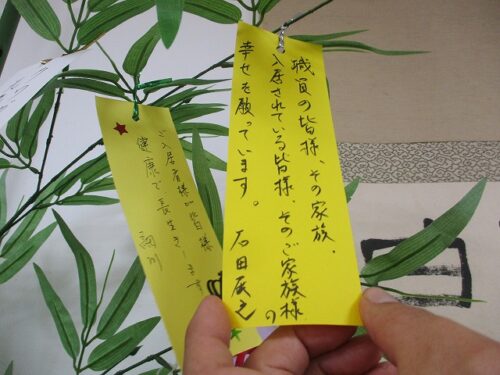 職員の皆様、その家族、
入居されている皆様、そのご家族様の
幸せを願っています。 石田辰之
ご入居者様が皆様
健康で長生きします